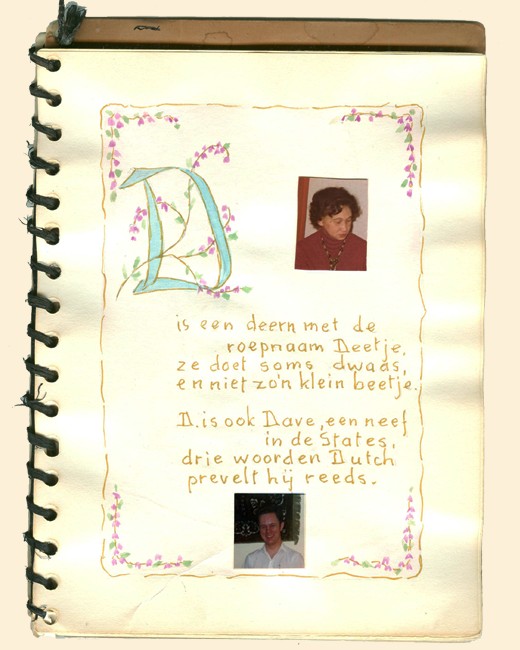 D
is een deern met de
roepnaam Deetje,
ze doet soms dwaas,
en niet zo'n klein beetje.
D. is ook Dave, een neef
in de States,
drie woorden Dutch
prevelt hij reeds.